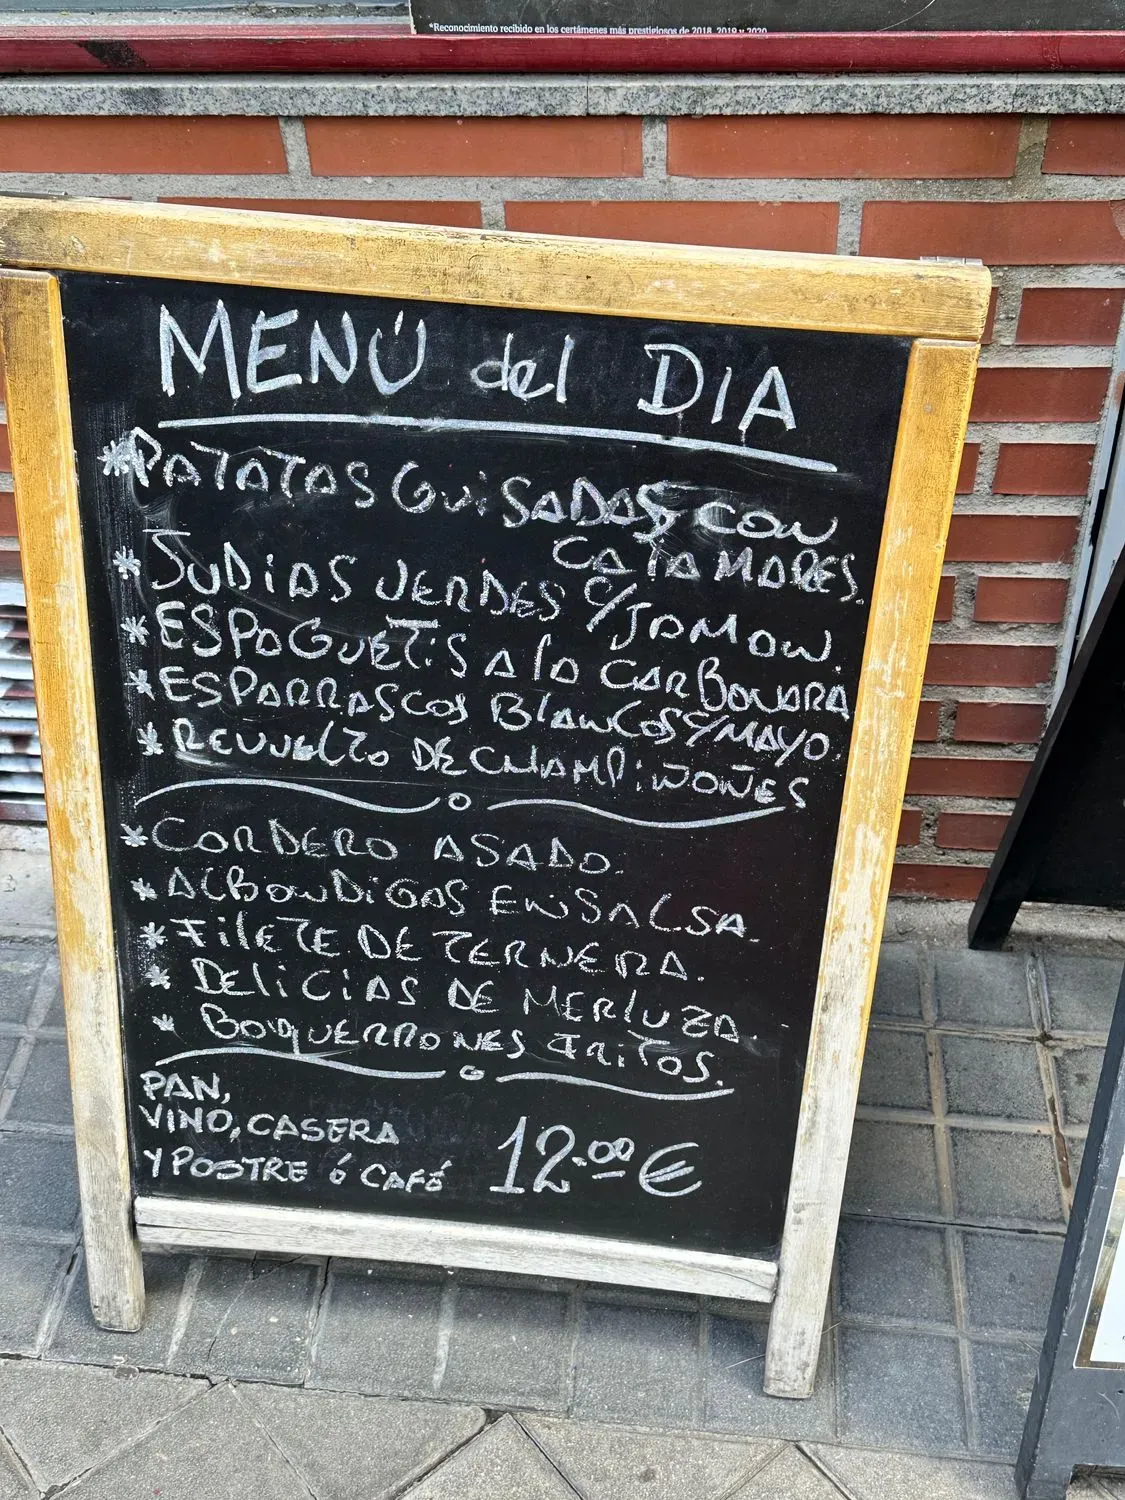 *Reconocimiento recibido en los certámenes más prestigiosos de 2018, 2019 y 2020
MENÚ del DIA
*PATATAS GUISADAS CON
CALAMARES.
*JUDIAS VERDES C/JAMON.
*ESPAGUETIS A la CARBONARA
*ESPARRAGOS BlANCOS C/MAYO.
*REVUELTO DE CHAMPIÑOÑES
*CORDERO ASADO.
*AlBONDIGAS EN SALSA.
*FilETE DE TERNERA.
*DELiCiAS DE MERluZA.
*BOQUERRONES FRiTOS.
PAN,
VINO, CASERA
Y POSTRE ó CAFÉ 12.00 €